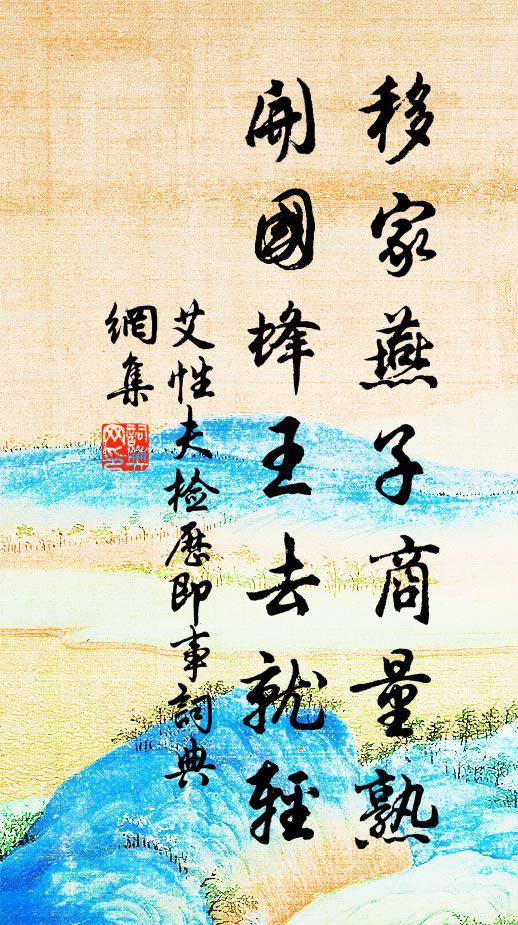 移家燕子商量熟
開國蜂王去就輕
艾性夫检历即事詞典
網集